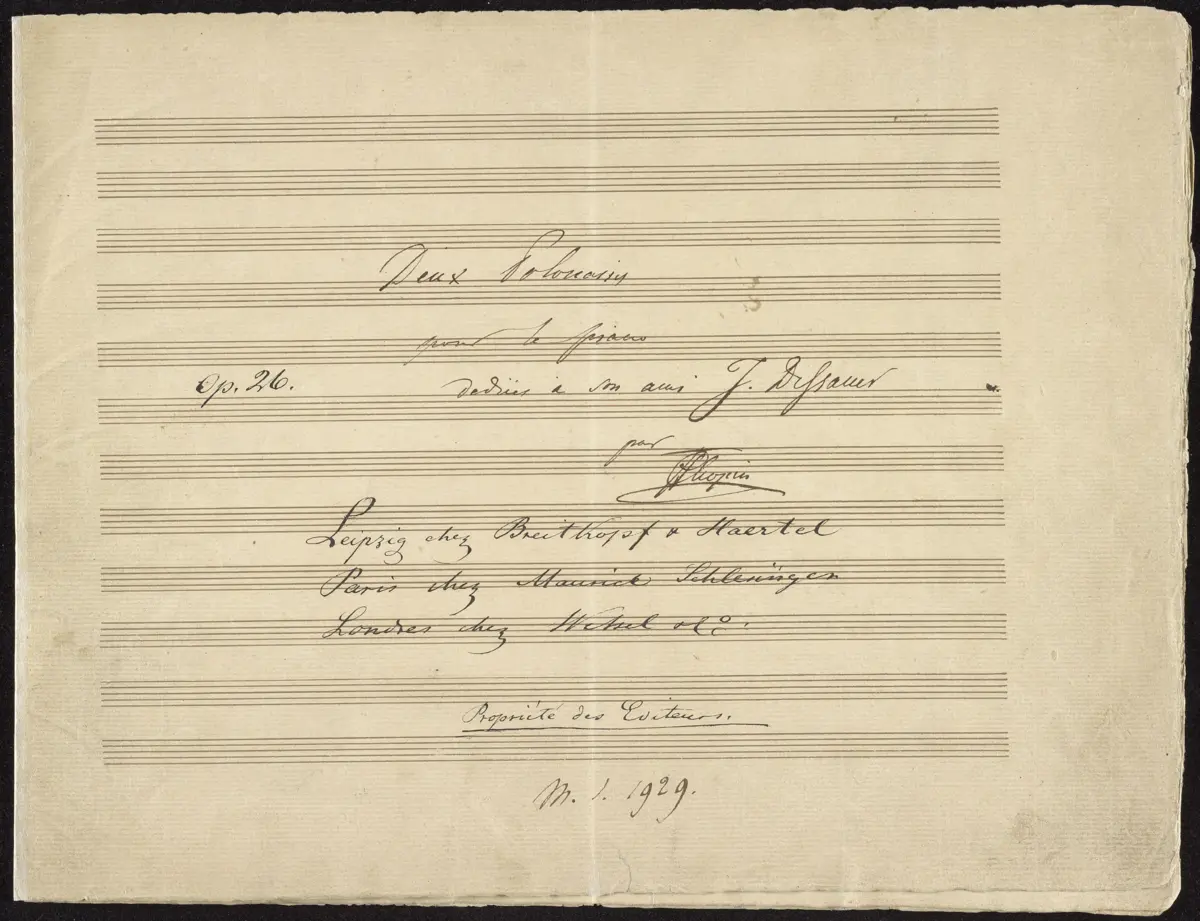 Deux Polonaises
pour le piano
Op. 26. dediées à son ami J. Dessauer
par
FChopin
Leipzig chez Breitkopf & Haertel
Paris chez Maurice Schlesinger
Londres chez Wessel & Co:
Propriété des Editeurs.
M. S. 1929.